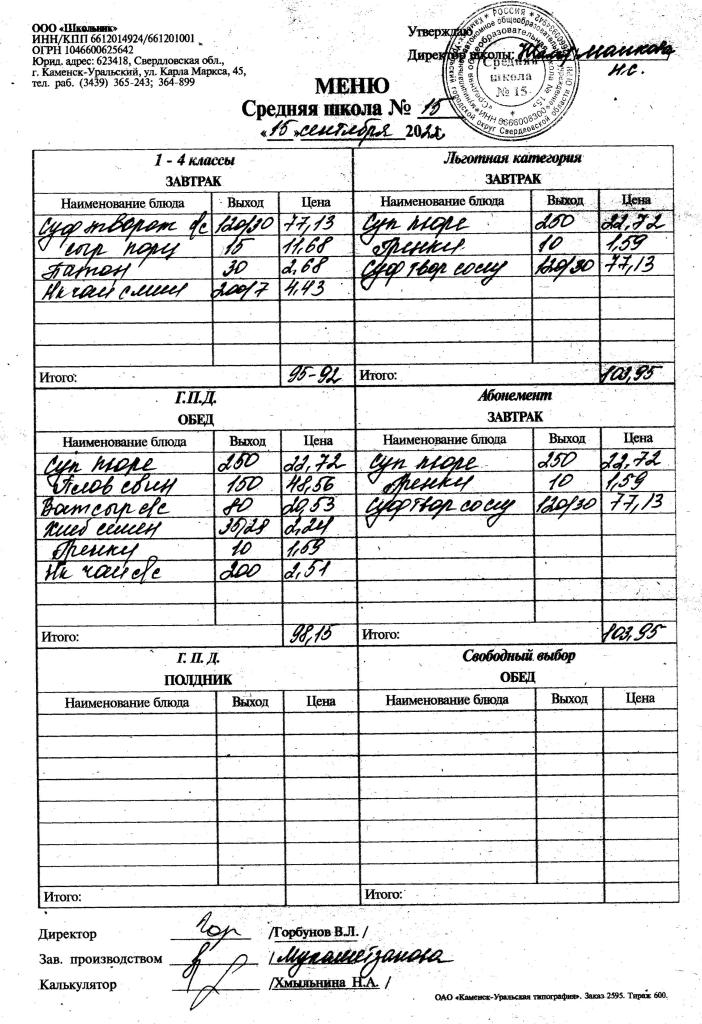 ООО «Школьник»
ИНН/КПП 6612014924/661201001
ОГРН 1046600625642
Юрид. адрес: 623418, Свердловская обл.,
г. Каменск-Уральский, ул. Карла Маркса, 45,
тел. раб. (3439) 365-243; 364-899
Утверждаю
Директор школы:
Н.С.
Средняя
школа
№ 15
МЕНЮ
Средняя школа № 15
«15» сентября 2022
1 - 4 классы
ЗАВТРАК
Наименование блюда Выход Цена
Суф творож с/с 120/30 77,13
сыр порц 15 11,68
Батон 30 2,68
Нк чай с лим 200/7 4,43
Итого: 95-92
Льготная категория
ЗАВТРАК
Наименование блюда Выход Цена
Суп пюре 250 22,72
Гренки 10 1,59
Суф твор со сгу 120/30 77,13
Итого: 103,95
Г.П.Д.
ОБЕД
Наименование блюда Выход Цена
Суп пюре 250 22,72
Плов свин 150 48,56
Ватсыр с/с 80 20,53
Хлеб 35/28 2,24
Гренки 10 1,59
Нк чай с/с 200 2,51
Итого: 98,15
Абонемент
ЗАВТРАК
Наименование блюда Выход Цена
Суп пюре 250 22,72
Гренки 10 1,59
Суф твор со сгу 120/30 77,13
Итого: 103,95
Г. П. Д.
ПОЛДНИК
Наименование блюда Выход Цена
Итого:
Свободный выбор
ОБЕД
Наименование блюда Выход Цена
Итого:
Директор /Горбунов В.Л. /
Зав. производством / Мухаметзанова
Калькулятор /Хмыльнина Н.А. /
ОАО «Каменск-Уральская типография». Заказ 2595. Тираж 600.